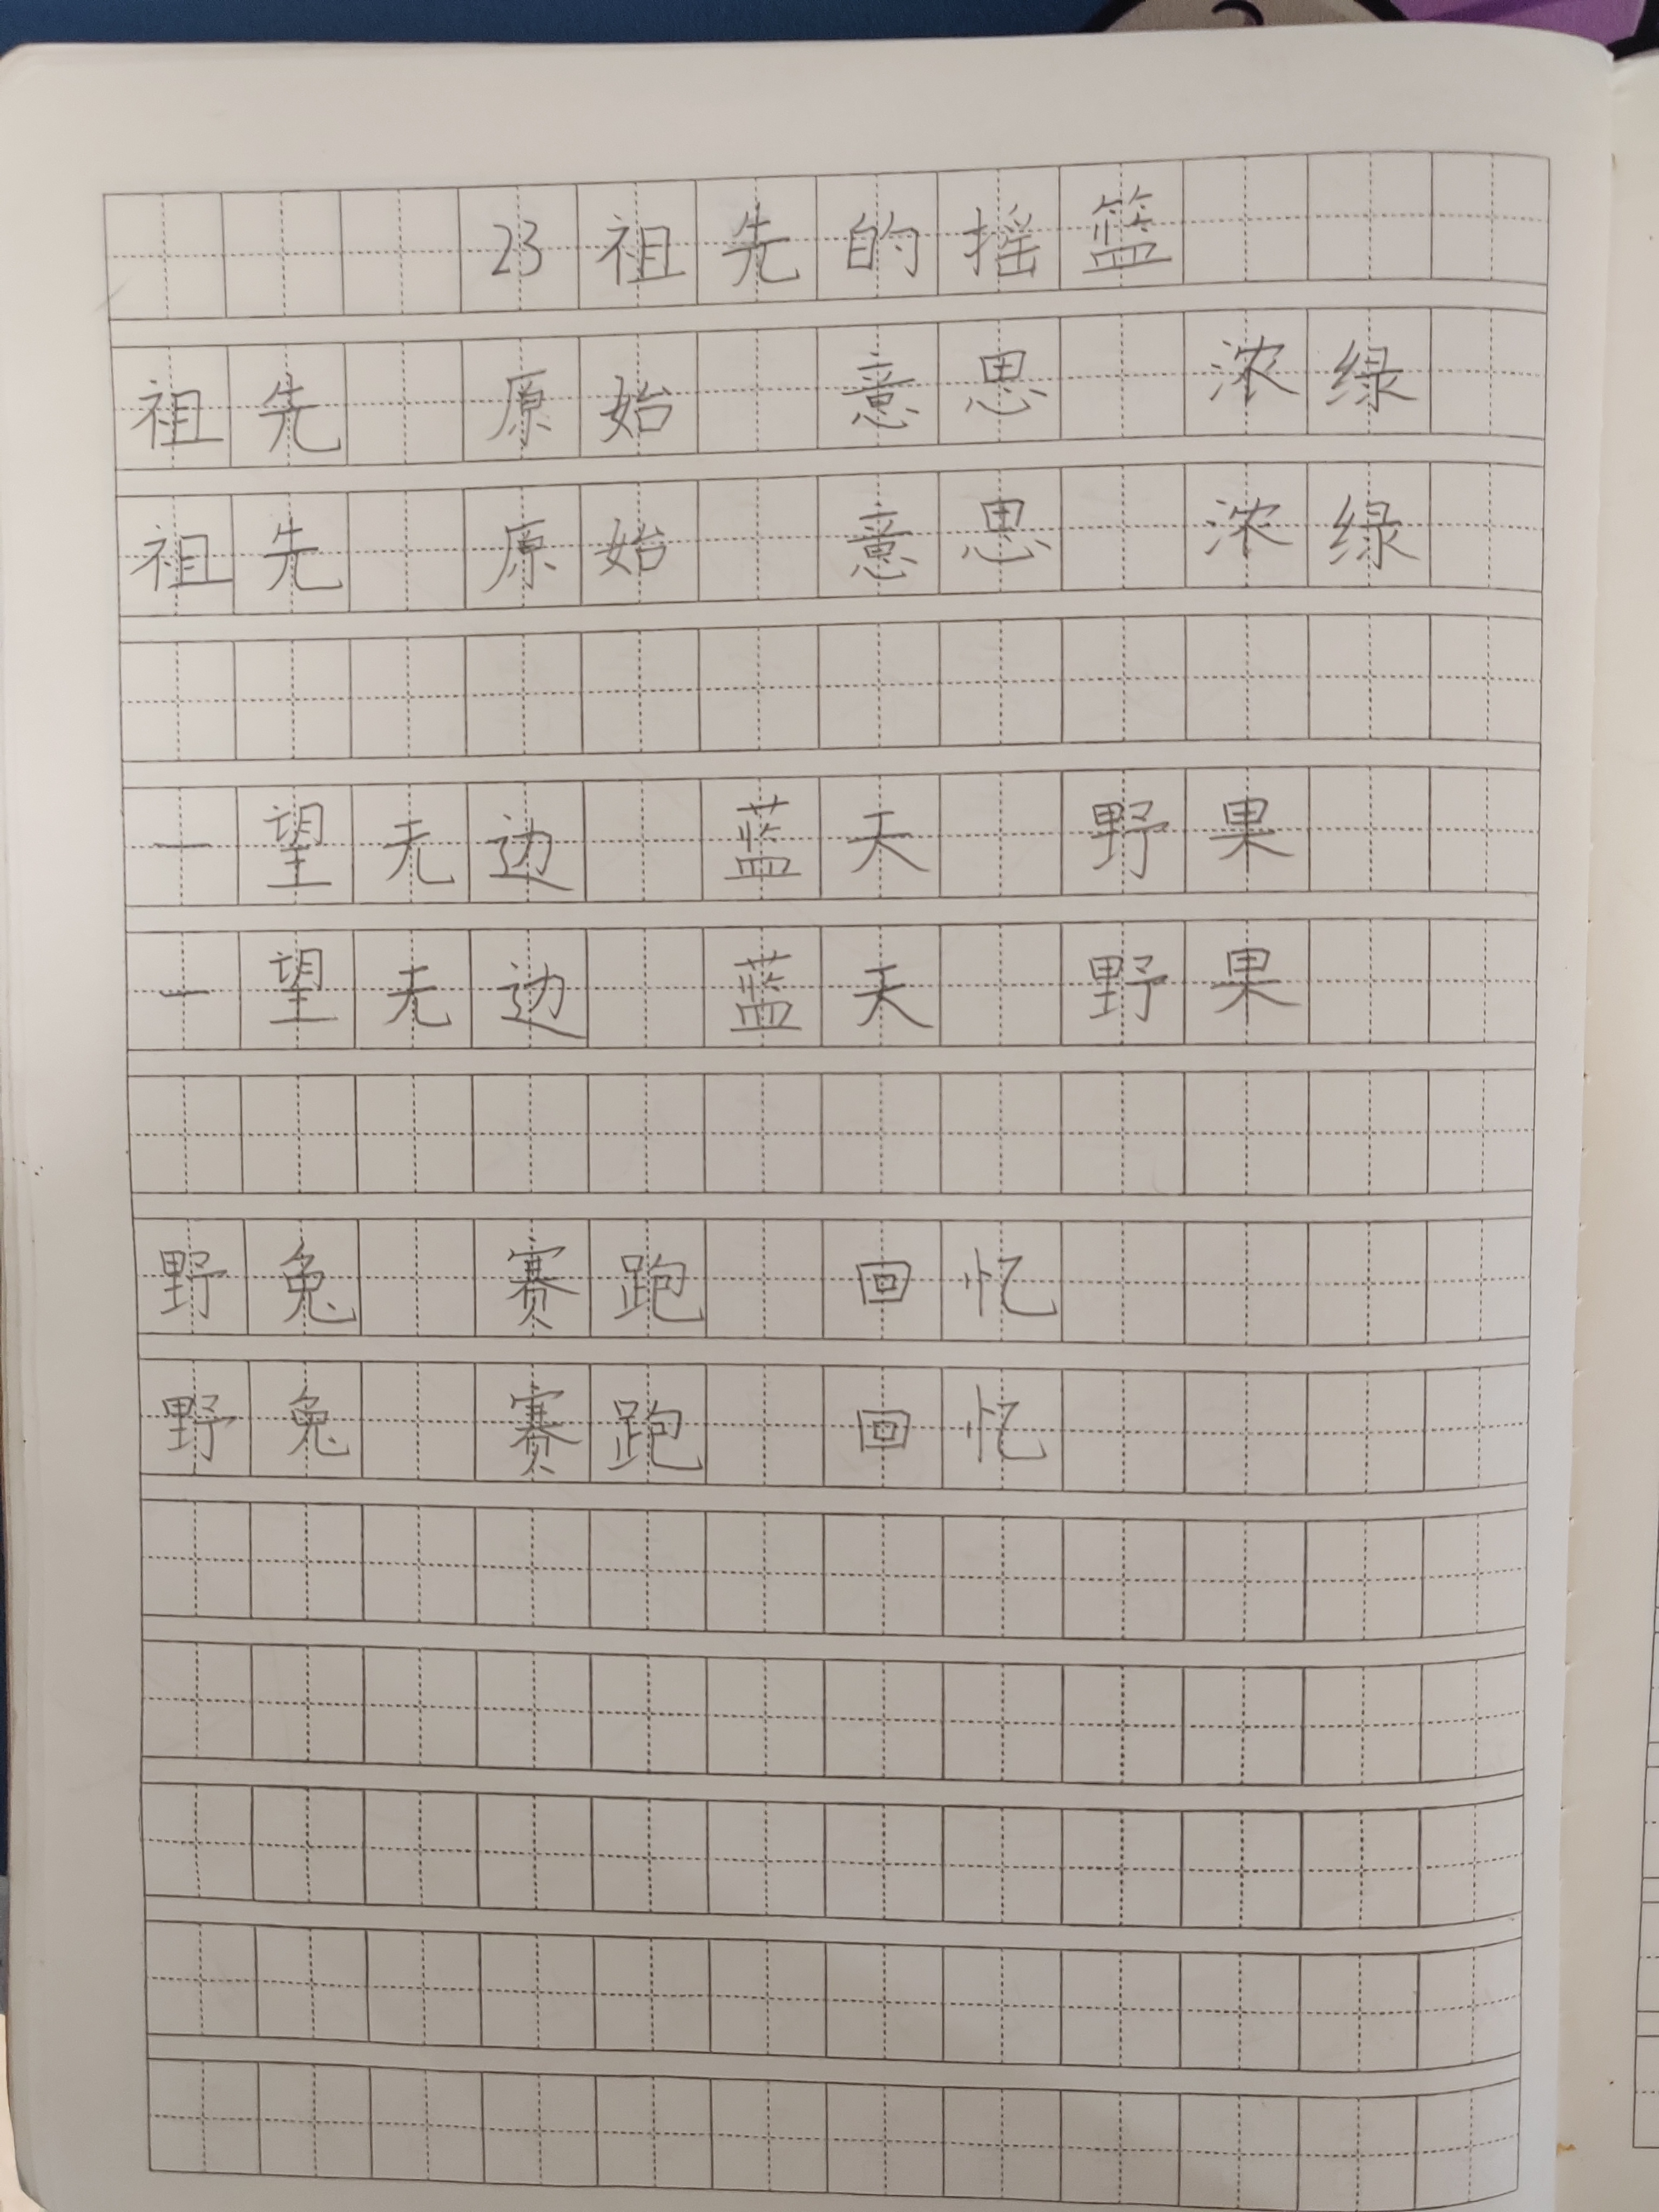 23 祖先的摇篮
祖先 原始 意思 浓绿
祖先 原始 意思 浓绿
一望无边 蓝天 野果
一望无边 蓝天 野果
野兔 赛跑 回忆
野兔 赛跑 回忆